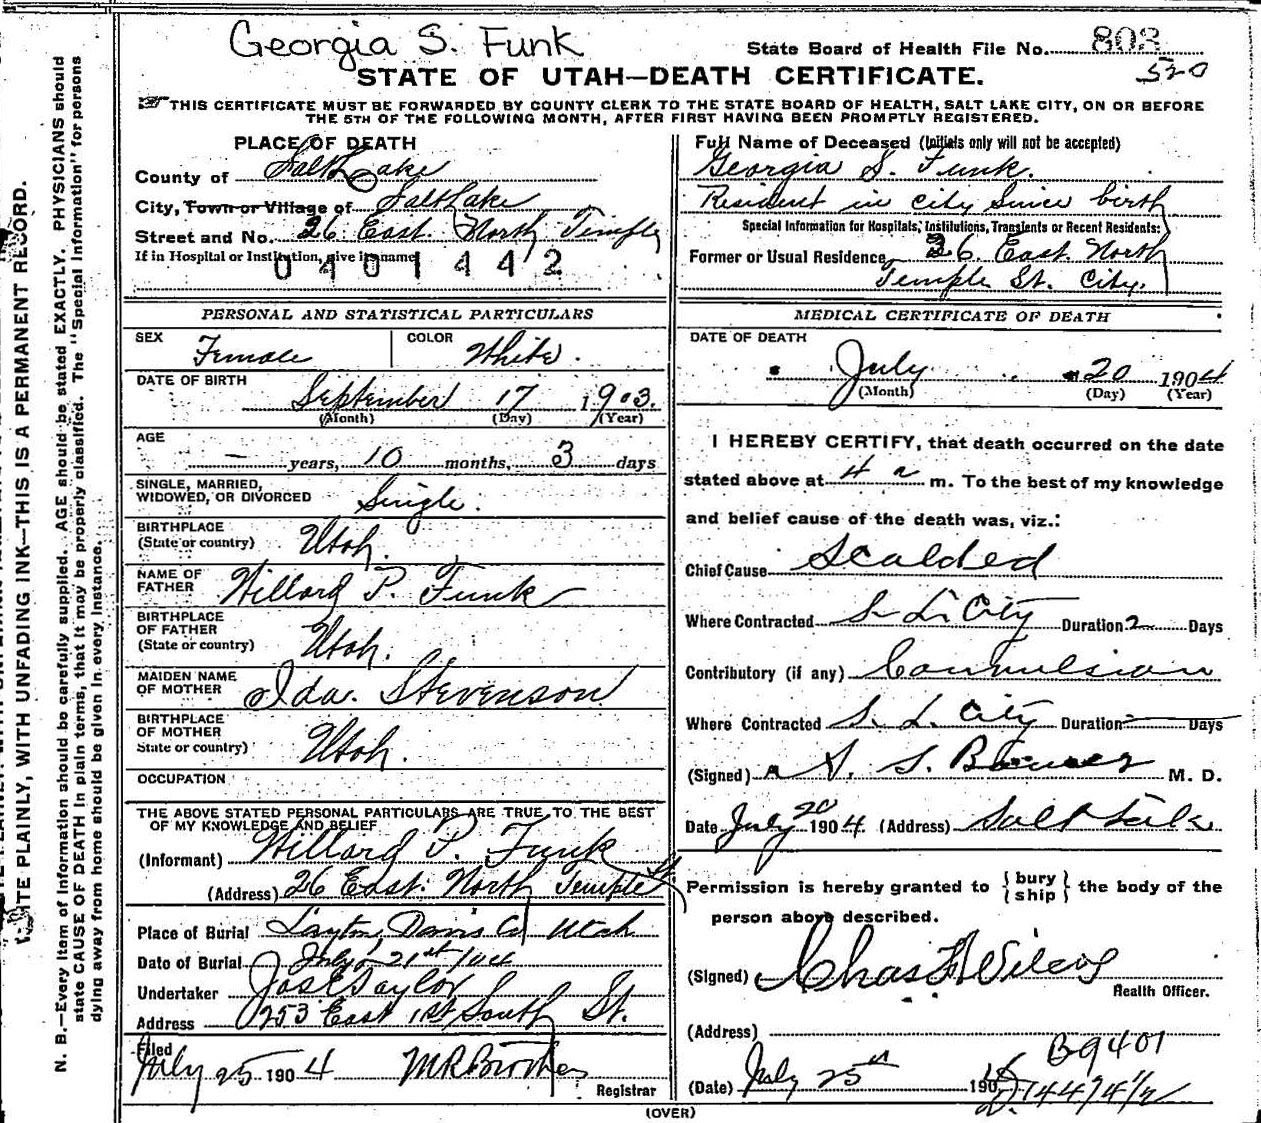 Georgia S. Funk
State Board of Health File No. 803
520
STATE OF UTAH—DEATH CERTIFICATE.
THIS CERTIFICATE MUST BE FORWARDED BY COUNTY CLERK TO THE STATE BOARD OF HEALTH, SALT LAKE CITY, ON OR BEFORE
THE 5TH OF THE FOLLOWING MONTH, AFTER FIRST HAVING BEEN PROMPTLY REGISTERED.
PLACE OF DEATH
County of Salt Lake
City, Town or Village of Salt Lake
Street and No. 26 East North Temple
If in Hospital or Institution, give its name
0401442
Full Name of Deceased (Initials only will not be accepted)
Georgia S. Funk.
Resident in city since birth
Special Information for Hospitals, Institutions, Transients or Recent Residents:
Former or Usual Residence 26 East North
Temple St. City.
PERSONAL AND STATISTICAL PARTICULARS
SEX Female COLOR White.
DATE OF BIRTH
September 17 1903.
(Month) (Day) (Year)
AGE
— years, 10 months, 3 days
SINGLE, MARRIED,
WIDOWED, OR DIVORCED Single.
BIRTHPLACE
(State or country) Utah.
NAME OF
FATHER Willard P. Funk
BIRTHPLACE
OF FATHER
(State or country) Utah.
MAIDEN NAME
OF MOTHER Ida. Stevenson
BIRTHPLACE
OF MOTHER
State or country) Utah.
OCCUPATION
THE ABOVE STATED PERSONAL PARTICULARS ARE TRUE TO THE BEST
OF MY KNOWLEDGE AND BELIEF
(Informant) Willard P. Funk
(Address) 26 East. North Temple St.
Place of Burial Layton Davis Co Utah
Date of Burial July 21st /04
Undertaker Jos E Taylor
Address 253 East 1st South St.
Filed
July 25 1904
Registrar
MEDICAL CERTIFICATE OF DEATH
DATE OF DEATH
July 20 1904
(Month) (Day) (Year)
I HEREBY CERTIFY, that death occurred on the date
stated above at 4 a m. To the best of my knowledge
and belief cause of the death was, viz.:
Chief Cause Scalded
Where Contracted S. L. City Duration 2 Days
Contributory (if any) Convulsion
Where Contracted S. L. City Duration — Days
(Signed) S. M. D.
Date July 20 1904 (Address) Salt Lake
Permission is hereby granted to { bury ship } the body of the
person above described.
(Signed) Chas Wilcox
Health Officer.
(Address)
B9401
(Date) July 25th 190
D. 14474 1/2
(OVER)
WRITE PLAINLY, WITH UNFADING INK—THIS IS A PERMANENT RECORD.
N. B.—Every item of information should be carefully supplied. AGE should be stated EXACTLY. PHYSICIANS should
state CAUSE OF DEATH in plain terms, that it may be properly classified. The "Special Information" for persons
dying away from home should be given in every instance.